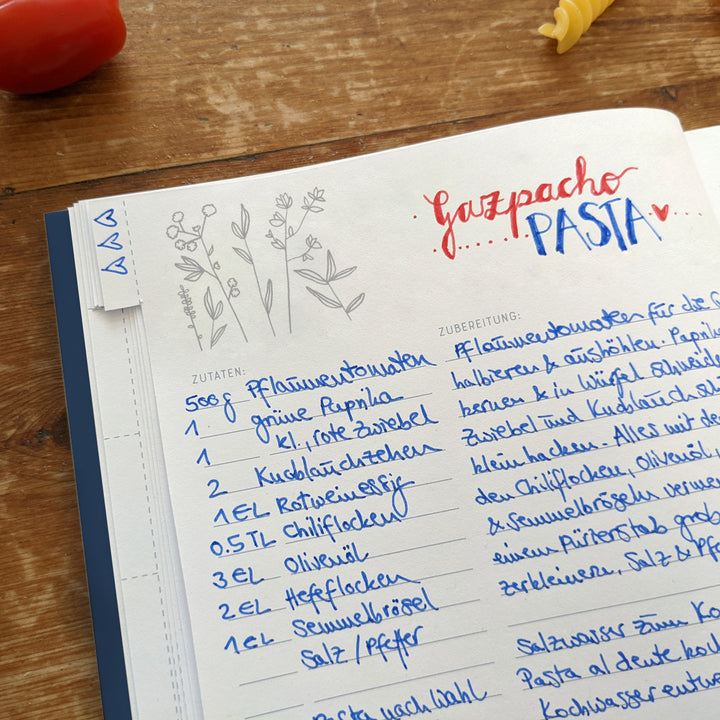 Gazpacho
PASTA
ZUTATEN:
500g Pflaumentomaten
1 grüne Paprika
1 kl., rote Zwiebel
2 Knoblauchzehen
1 EL Rotweinessig
0.5 TL Chiliflocken
3 EL Olivenöl
2 EL Hefeflocken
1 EL Semmelbrösel
Salz / Pfeffer
Pasta nach Wahl
ZUBEREITUNG:
Pflaumentomaten für die
halbieren & aushöhlen. Paprika
kernen & in Würfel schneid
Zwiebel und Knoblauch
klein hacken. Alles mit
den Chiliflocken, Olivenöl,
& Semmelbröseln verme
einem Pürierstab grob
zerkleinern, Salz & Pfe
Salzwasser zum Ko
Pasta al dente koch
Kochwasser entw